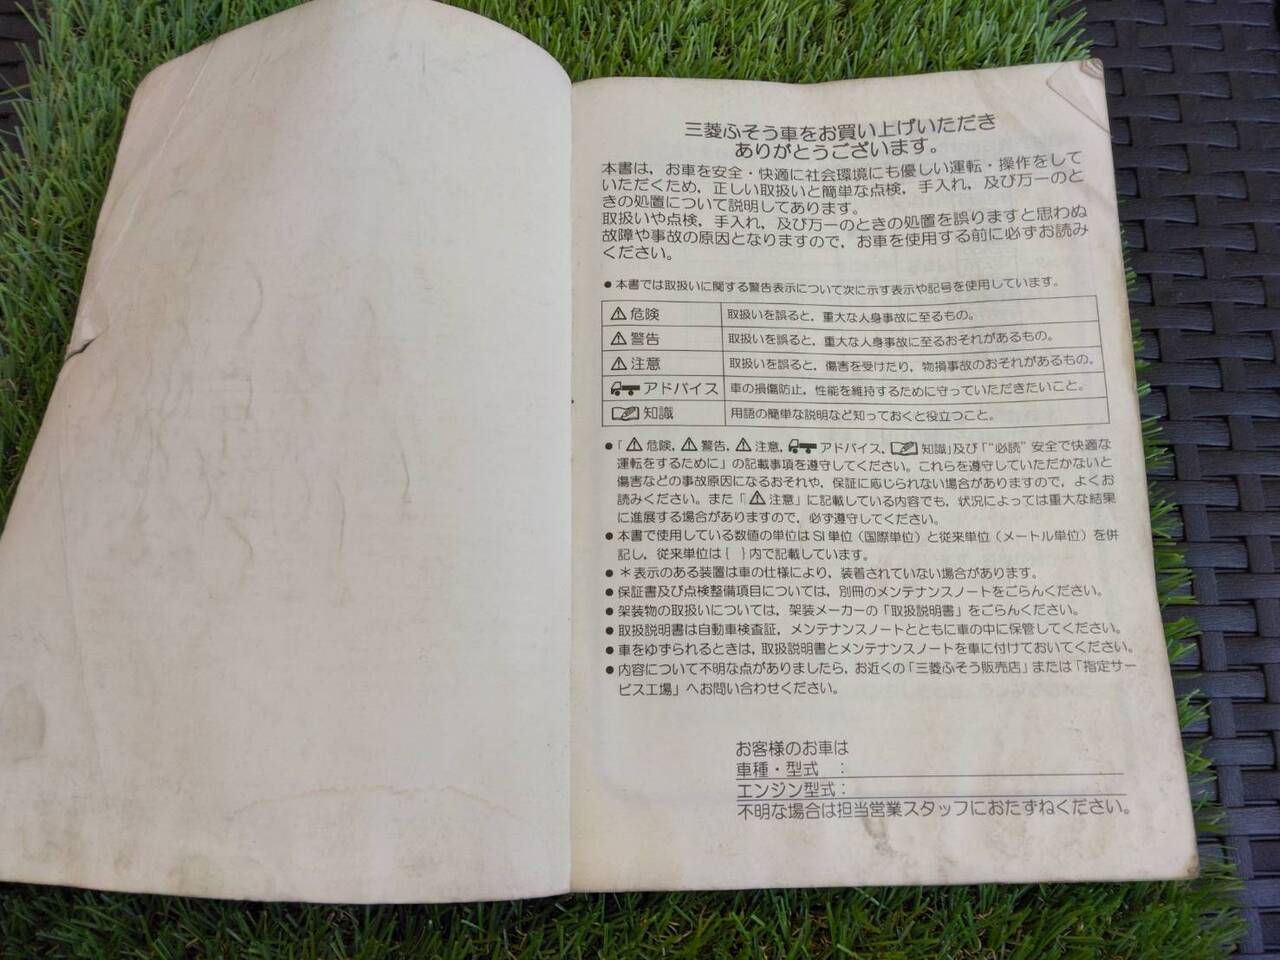 三菱ふそう車をお買い上げいただき
ありがとうございます。
本書は、お車を安全・快適に社会環境にも優しい運転・操作をして
いただくため、正しい取扱いと簡単な点検、手入れ、及び万一のと
きの処置について説明してあります。
取扱いや点検、手入れ、及び万一のときの処置を誤りますと思わぬ
故障や事故の原因となりますので、お車を使用する前に必ずお読み
ください。
●本書では取扱いに関する警告表示について次に示す表示や記号を使用しています。
⚠危険 取扱いを誤ると、重大な人身事故に至るもの。
⚠警告 取扱いを誤ると、重大な人身事故に至るおそれがあるもの。
⚠注意 取扱いを誤ると、傷害を受けたり、物損事故のおそれがあるもの。
アドバイス 車の損傷防止、性能を維持するために守っていただきたいこと。
知識 用語の簡単な説明など知っておくと役立つこと。
●「⚠危険、⚠警告、⚠注意、アドバイス、知識」及び「"必読" 安全で快適な
運転をするために」の記載事項を遵守してください。これらを遵守していただかないと
傷害などの事故原因になるおそれや、保証に応じられない場合がありますので、よくお
読みください。また「⚠注意」に記載している内容でも、状況によっては重大な結果
に進展する場合がありますので、必ず遵守してください。
●本書で使用している数値の単位はSI単位（国際単位）と従来単位（メートル単位）を併
記し、従来単位は{ }内で記載しています。
●＊表示のある装置は車の仕様により、装着されていない場合があります。
●保証書及び点検整備項目については、別冊のメンテナンスノートをごらんください。
●架装物の取扱いについては、架装メーカーの「取扱説明書」をごらんください。
●取扱説明書は自動車検査証、メンテナンスノートとともに車の中に保管してください。
●車をゆずられるときは、取扱説明書とメンテナンスノートを車に付けておいてください。
●内容について不明な点がありましたら、お近くの「三菱ふそう販売店」または「指定サー
ビス工場」へお問い合わせください。
お客様のお車は
車種・型式 ：
エンジン型式：
不明な場合は担当営業スタッフにおたずねください。